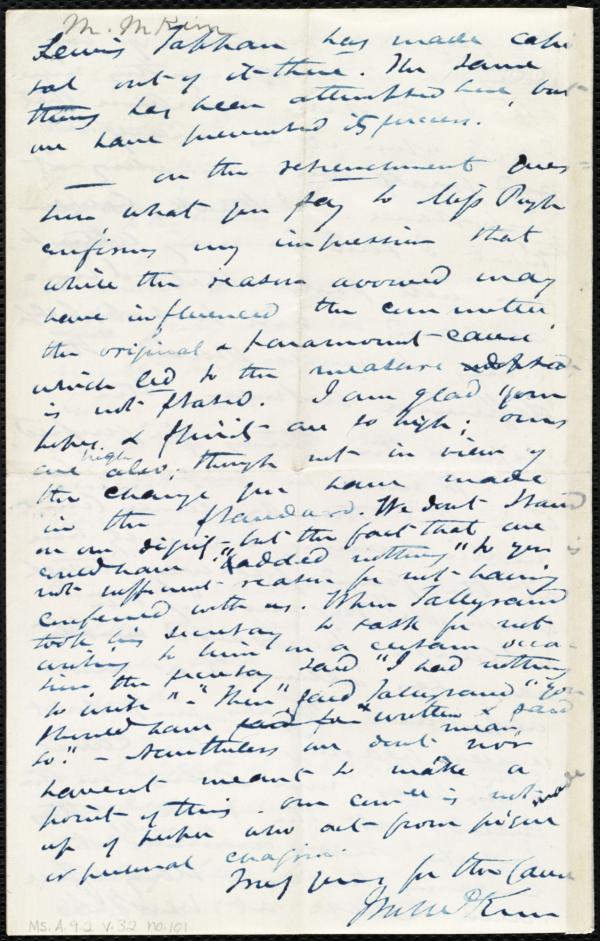 M. McKim
Lewis Tappan has made capi
tal out of it there. The same
thing has been attempted here, but
we have prevented its success.
— On the retrenchment ques-
tion, what you say to Miss Pugh
confirms my impression that
while the reason avowed may
have influenced the committee,
the original & paramount cause
which led to the measure adopted
is not stated. I am glad your
hopes & spirits are so high; ours
are high also, though not in view of
the change you have made
in the Standard. We dont stand
on our dignity – but the fact that we
could have "added nothing" to you is
not sufficient reason for not having
conferred with us. When Talleyrand
took his secretary to task for not
writing to him on a certain occa-
sion, the secretary said "I had nothing
to write" – "Then", said Talleyrand "you
should have written & said
so." – Nevertheless we dont nor
havent meant to make a
point of this. Our Comtee is not made
up of people who act from pique
or personal chagrin.
Truly yours for the Cause
J Miller McKim
Ms. A. 9. 2 v. 32 no. 101